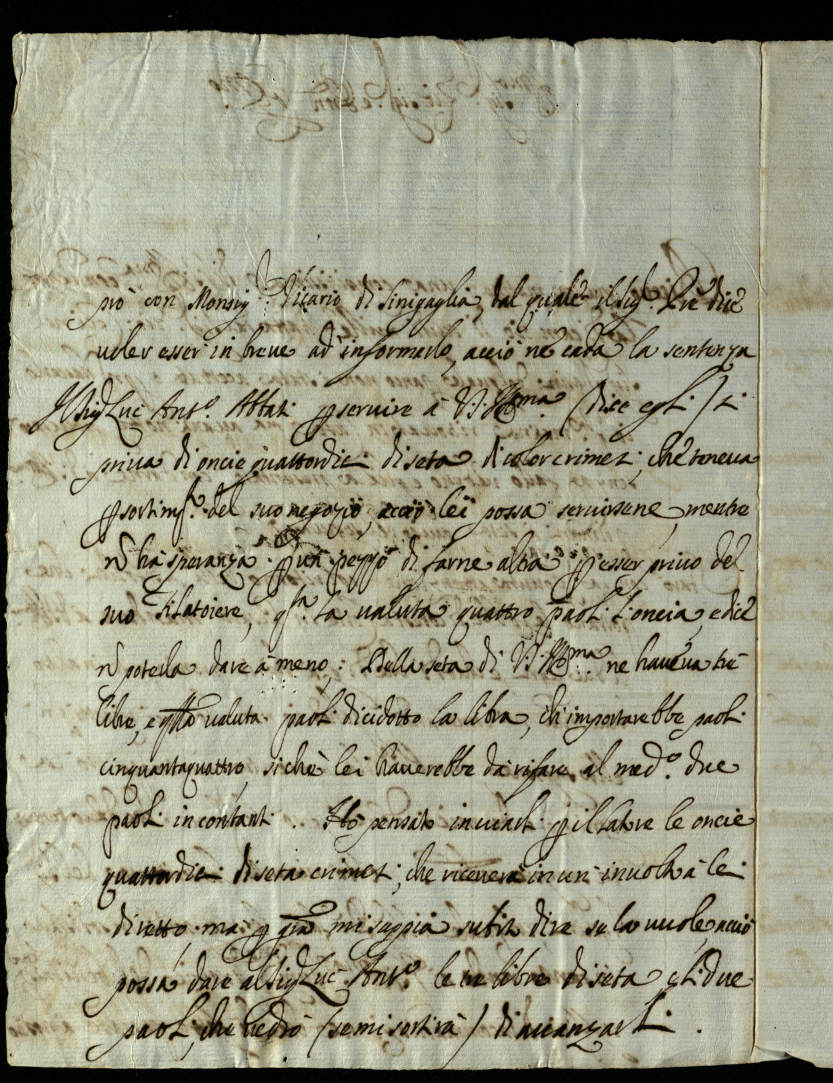 prò con Monsig.r Vicario di Sinigaglia, dal quale il Sig.r Prè dice
voler esser in breve ad informarlo, acciò nè cada la sentenza
Il Sig.r Luc' Ant.o Abbati p servire à V.S. Ill.ma (dice egli) si
priva di oncie quattordici di seta di color crimesi, che teneva
p sortim.to del suo negozio, acciò lei possa servirsene, mentre
nò hà speranza p un pezzo di farne altra p esser privo del
suo filatoiere, q.sta la valuta quattro paoli l'oncia, e dice
nò poterla dare à meno; Della seta di V.S. Ill.ma ne haveva trè
libre, e q.sta valuta paoli dicidotto la libra, ch' importarebbe paoli
cinquantaquattro, si chè lei haverebbe da rifare al med.o due
paoli in contanti. Hò pensato inviarli p il latore le oncie
quattordici di seta crimesi, che riceverà in un' involto à lei
diretto, ma p gra mi sappia subito dire se la vuole acciò
possa dare al Sig.r Luc' Ant.o le tre libre di seta e li due
paoli, che vedrò (se mi sortirà) di avanzarli.